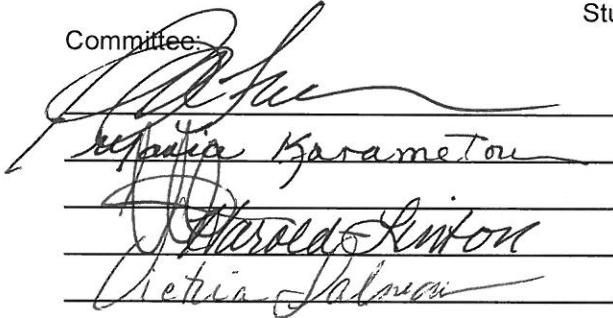 Stu
Committee:
Karametou
Harold Linton
Victoria Salmon